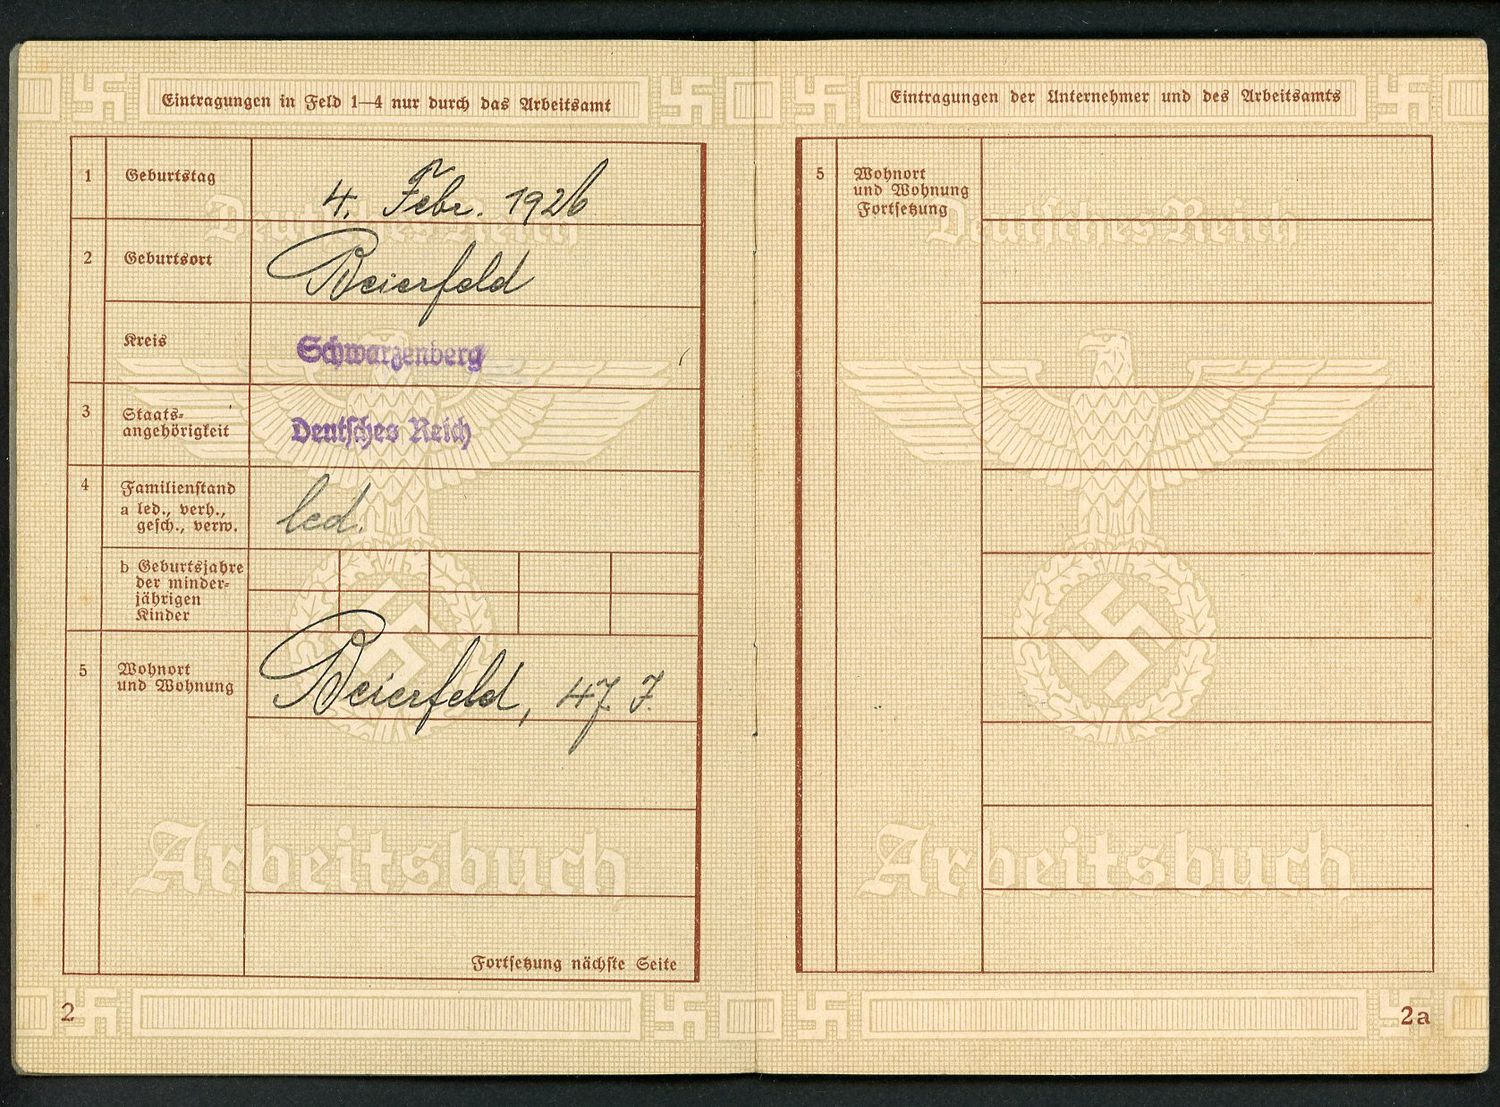 Eintragungen in Feld 1—4 nur durch das Arbeitsamt
1 Geburtstag 4. Febr. 1926
2 Geburtsort Beierfeld
Kreis Schwarzenberg
3 Staats-
angehörigkeit Deutsches Reich
4 Familienstand
a led., verh.,
gesch., verw. led.
b Geburtsjahre
der minder-
jährigen
Kinder
5 Wohnort
und Wohnung Beierfeld, 47. J.
Fortsetzung nächste Seite
Deutsches Reich
Arbeitsbuch
2
Eintragungen der Unternehmer und des Arbeitsamts
5 Wohnort
und Wohnung
Fortsetzung
Deutsches Reich
Arbeitsbuch
2a